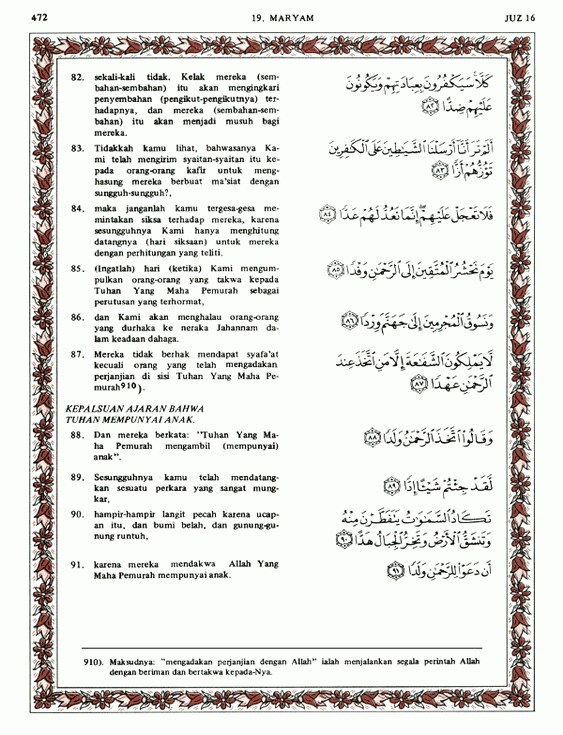 472 19. MARYAM JUZ 16
82. sekali-kali tidak. Kelak mereka (sem-
bahan-sembahan) itu akan mengingkari
penyembahan (pengikut-pengikutnya) ter-
hadapnya, dan mereka (sembahan-sem-
bahan) itu akan menjadi musuh bagi
mereka.
كَلَّا ۚ سَيَكْفُرُونَ بِعِبَادَتِهِمْ وَيَكُونُونَ
عَلَيْهِمْ ضِدًّا ﴿٨٢﴾
83. Tidakkah kamu lihat, bahwasanya Ka-
mi telah mengirim syaitan-syaitan itu ke-
pada orang-orang kafir untuk meng-
hasung mereka berbuat ma'siat dengan
sungguh-sungguh?,
أَلَمْ تَرَ أَنَّا أَرْسَلْنَا الشَّيَاطِينَ عَلَى الْكَافِرِينَ
تَؤُزُّهُمْ أَزًّا ﴿٨٣﴾
84. maka janganlah kamu tergesa-gesa me-
mintakan siksa terhadap mereka, karena
sesungguhnya Kami hanya menghitung
datangnya (hari siksaan) untuk mereka
dengan perhitungan yang teliti.
فَلَا تَعْجَلْ عَلَيْهِمْ ۖ إِنَّمَا نَعُدُّ لَهُمْ عَدًّا ﴿٨٤﴾
85. (Ingatlah) hari (ketika) Kami mengum-
pulkan orang-orang yang takwa kepada
Tuhan Yang Maha Pemurah sebagai
perutusan yang terhormat,
يَوْمَ نَحْشُرُ الْمُتَّقِينَ إِلَى الرَّحْمَٰنِ وَفْدًا ﴿٨٥﴾
86. dan Kami akan menghalau orang-orang
yang durhaka ke neraka Jahannam da-
lam keadaan dahaga.
وَنَسُوقُ الْمُجْرِمِينَ إِلَىٰ جَهَنَّمَ وِرْدًا ﴿٨٦﴾
87. Mereka tidak berhak mendapat syafa'at
kecuali orang yang telah mengadakan
perjanjian di sisi Tuhan Yang Maha Pe-
murah910).
لَا يَمْلِكُونَ الشَّفَاعَةَ إِلَّا مَنِ اتَّخَذَ عِنْدَ
الرَّحْمَٰنِ عَهْدًا ﴿٨٧﴾
KEPALSUAN AJARAN BAHWA
TUHAN MEMPUNYAI ANAK.
88. Dan mereka berkata: "Tuhan Yang Ma-
ha Pemurah mengambil (mempunyai)
anak".
وَقَالُوا اتَّخَذَ الرَّحْمَٰنُ وَلَدًا ﴿٨٨﴾
89. Sesungguhnya kamu telah mendatang-
kan sesuatu perkara yang sangat mung-
kar,
لَقَدْ جِئْتُمْ شَيْئًا إِدًّا ﴿٨٩﴾
90. hampir-hampir langit pecah karena ucap-
an itu, dan bumi belah, dan gunung-gu-
nung runtuh,
تَكَادُ السَّمَاوَاتُ يَتَفَطَّرْنَ مِنْهُ
وَتَنْشَقُّ الْأَرْضُ وَتَخِرُّ الْجِبَالُ هَدًّا ﴿٩٠﴾
91. karena mereka mendakwa Allah Yang
Maha Pemurah mempunyai anak.
أَنْ دَعَوْا لِلرَّحْمَٰنِ وَلَدًا ﴿٩١﴾
910). Maksudnya: "mengadakan perjanjian dengan Allah" ialah menjalankan segala perintah Allah
dengan beriman dan bertakwa kepada-Nya.